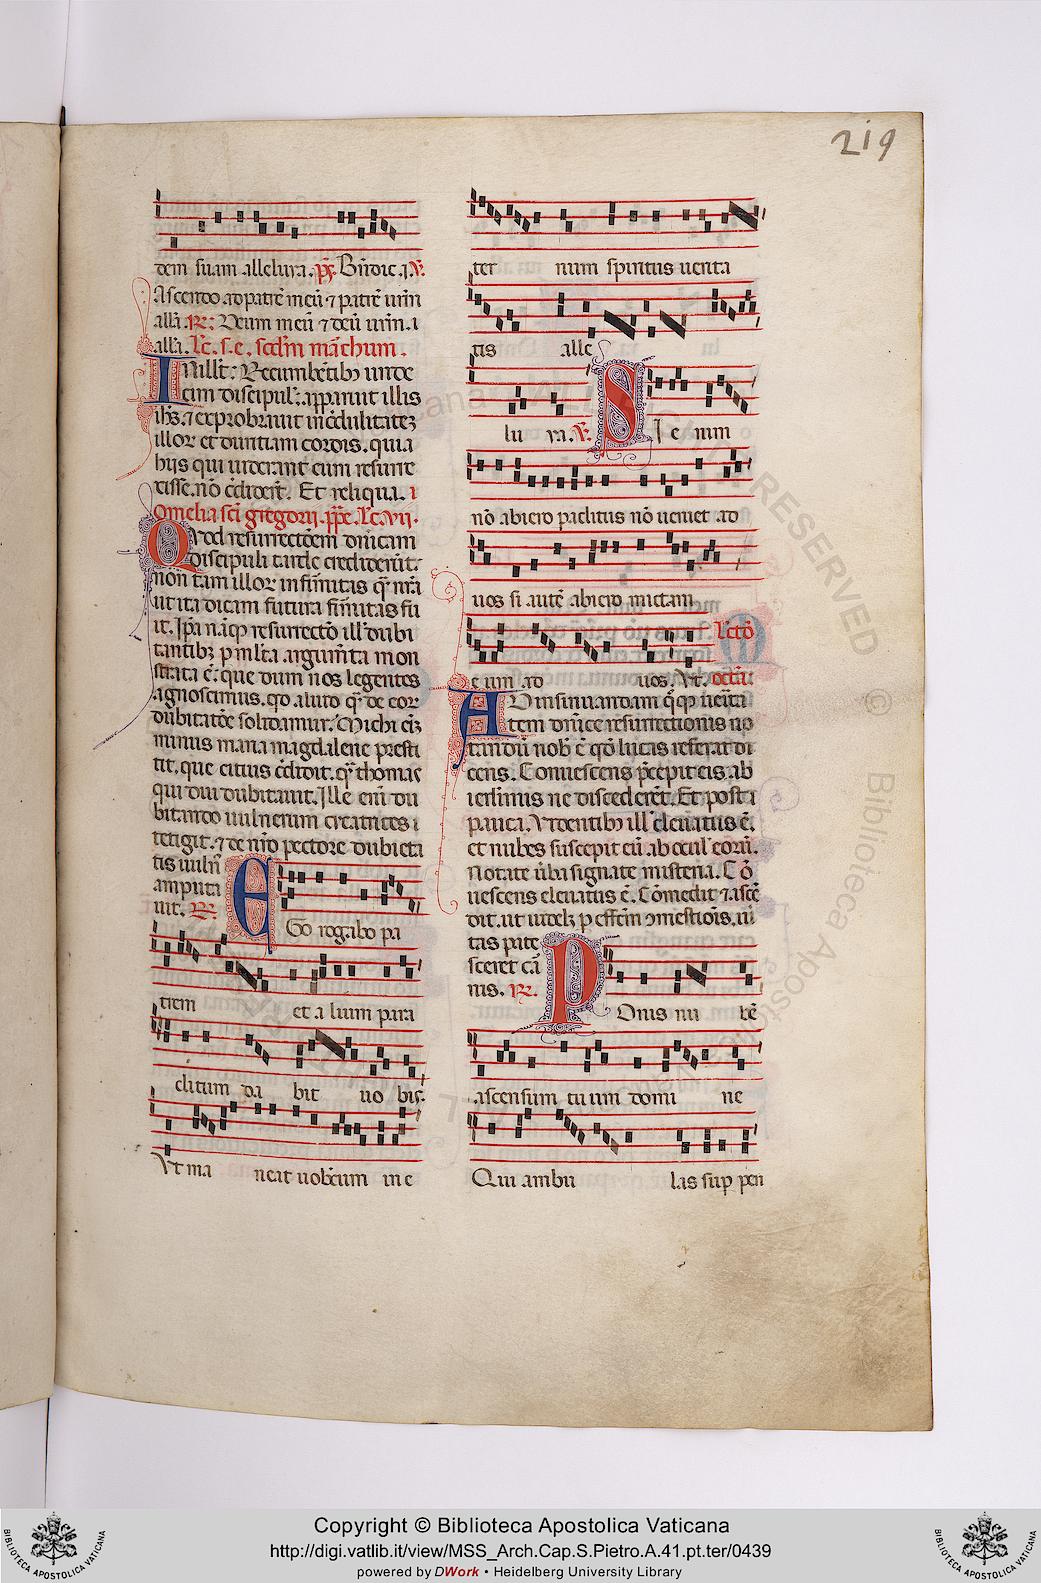 219
dem suam alleluya. ps̄. Bn̄dic. i. ℣.
Ascendo ad patrē meū ⁊ patrē urm̄
all'a. ℞. Deum meū ⁊ deū urm̄. i
all'a. Lc̄. s. e. scd'm marchum.
In ill't: Recumbētib; unde
cim discipul': apparuit illis
ih's. ⁊ exprobrauit in c̄dulitatē
illor et duritiam cordis. quia
hiis qui uiderant eum resurre
xisse. nō c̄diderūt. Et reliqua.
Omelia sc̄i gregorii. pp̄e. Lc̄. vii.
Quod resurrectōem dn̄icam
discipuli tarde crediderūt.
non tam illor infirmitas q̄ nr̄a
ut ita dicam futura firmitas fu
it. Ip̄a nāq; resurrectō ill' dubi
tantib; p mlt̄a argumt̄a mon
strata ē: que dum nos legentes
agnoscimus. qd̄ aliud q̄ de eor
dubitatōe solidamur: Michi ei;
minus maria magdalene presti
tit. que citius c̄didit. q̄ thomas
qui diu dubitauit. Ille eni du
bitando uulnerum cicatrices
tetigit. ⁊ de nr̄o pectore dubieta
tis uuln'
amputa
uit. ℞. EGo rogabo pa
trem et alium para
clitum da bit uo bis.
Vt ma neat uobiscum in e
ter num spiritus uerita
tis alle
lu ya. ℣. SI e nim
nō abiero paclitus nō ueniet ad
uos si autē abiero mittam
e um ad uos. Vt. Lctō
octā:
AD insinuandam q̄q; ueritā
tem dn̄ice resurrectionis no
tandū nob' ē qd̄ lucas referat di
cens. Conuescens p̄cepit eis. ab
ierl'imis ne discederēt. Et post
pauca. Videntib; ill' eleuatus ē.
et nubes suscepit eū ab ocul' eorū.
Notate ūba signate misteria. Cō
uescens eleuatus ē. Cōmedit ⁊ ascē
dit. ut uidel; p effc̄m comestiōis. ui
tas pate
sceret cā
nis. ℞. POnis nu bē
ascensum tu um domi ne
Qui ambu las sup pen
© Biblioteca Apostolica Vaticana ALL RIGHTS RESERVED
Copyright © Biblioteca Apostolica Vaticana
http://digi.vatlib.it/view/MSS_Arch.Cap.S.Pietro.A.41.pt.ter/0439
powered by DWork • Heidelberg University Library
BIBLIOTECA APOSTOLICA VATICANA
BIBLIOTECA APOSTOLICA VATICANA